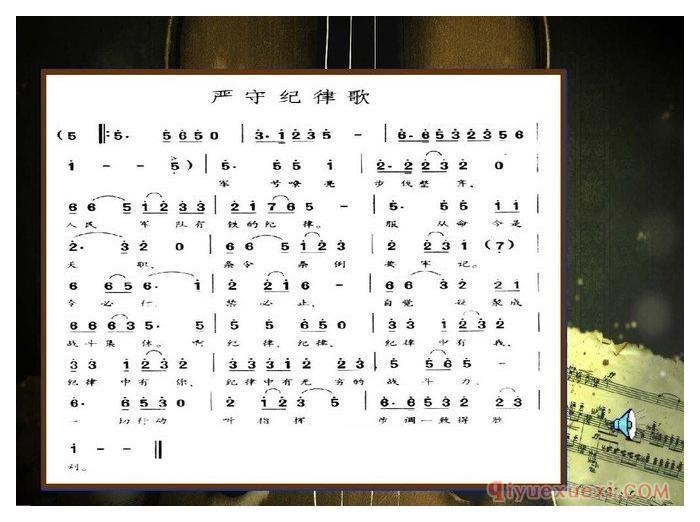 严守纪律歌
(5 ‖: 5· 5 6 5 0 | 3· 1 2 3 5 - | 6· 6 5 3 2 3 5 6 |
1 - - 5) | 5· 5 5 1 | 2· 2 2 3 2 0 |
军 号嘹亮 步伐整齐，
6 6 5 1 2 3 3 | 2 1 7 6 5 - | 5· 5 1 1 |
人民 军队有 铁的纪律。 服 从命令是
2· 3 2 0 | 6 6 5 1 2 3 | 2 2 3 1 (?) |
天 职，
6 6 5 6· 1 | 2 1 2 5 - | 6 6 3 2 2 1 |
令必行 禁必止， 自觉 凝聚成
6 6 6 3 5· 5 | 5 5 6 5 0 | 3 3 1 2 3 2 |
战斗集体。啊 纪律，纪律， 纪律中有我，
3 3 1 2 3 2 | 3 3 3 3 1 2 2 3 3 | 5 5 6 5 - |
纪律中有你， 纪律中有无穷的 战斗力，
6· 6 5 3 0 | 2 1 2 3 5 | 6· 6 5 3 2 2 3 |
一 切行动 听指挥， 步调一致得胜
1 - - ‖
利。
qiyuexuexi.com